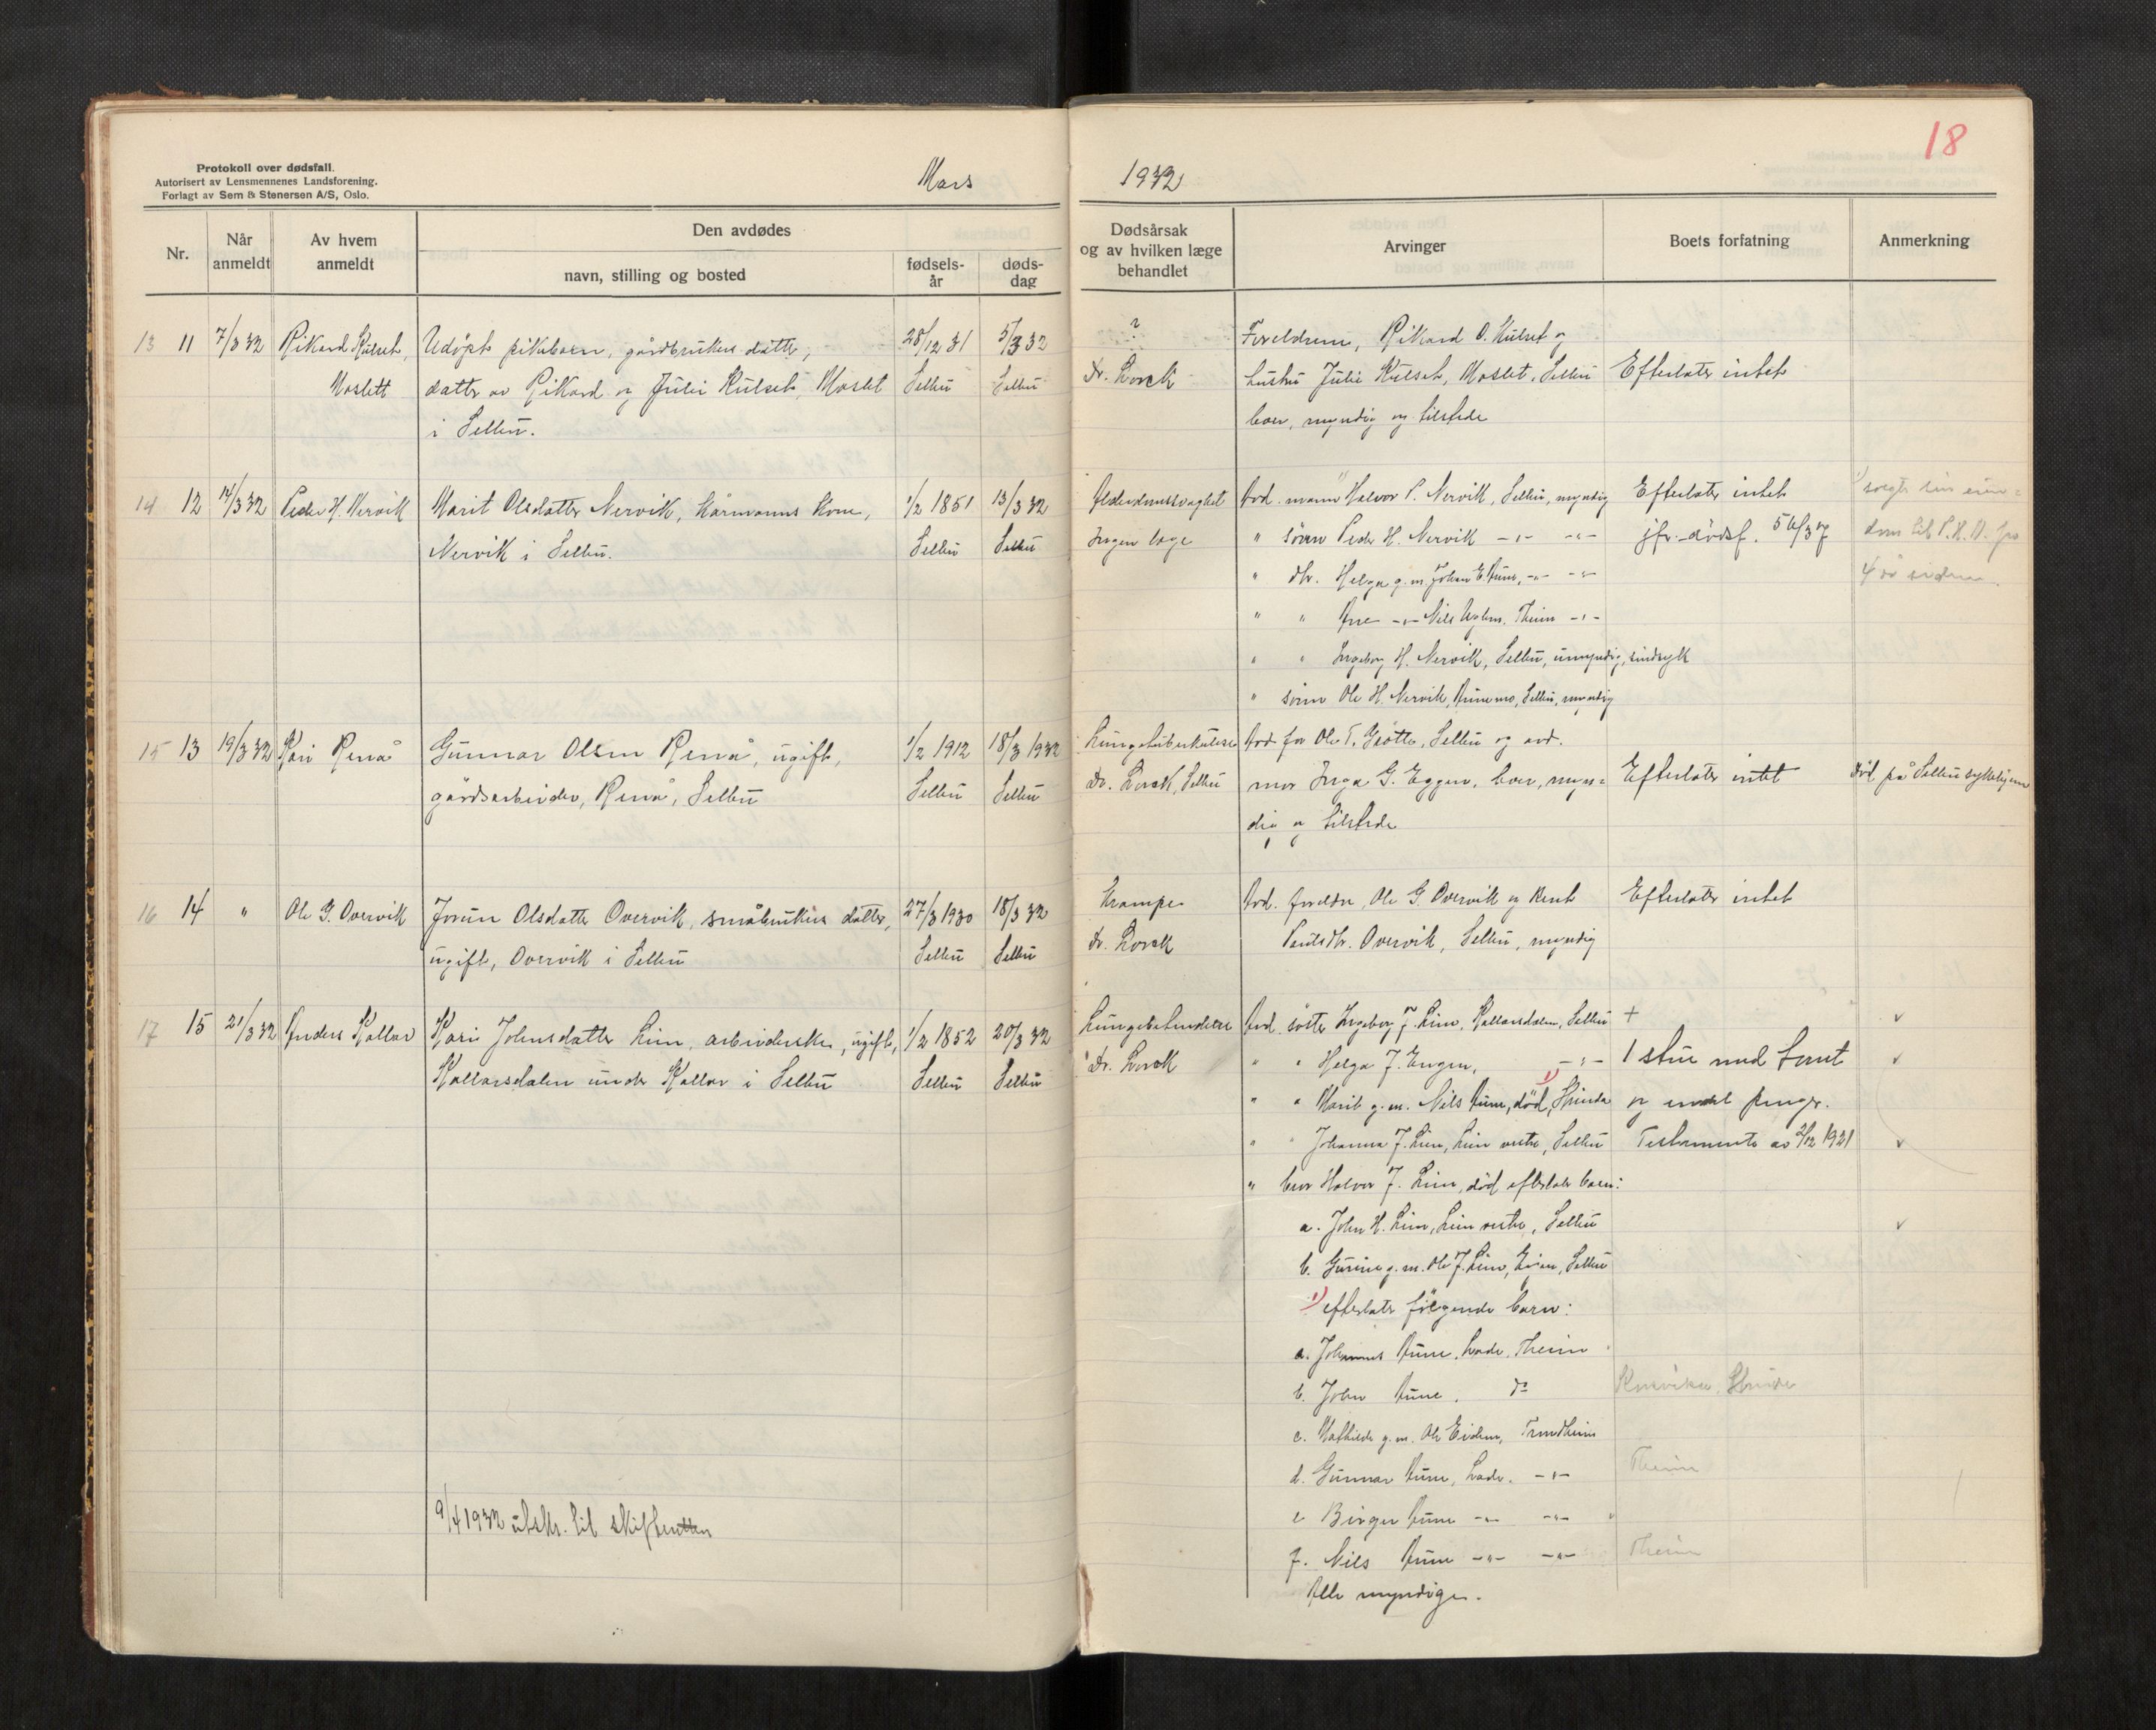 Protokoll over dødsfall.
Autorisert av Lensmennenes Landsforening.
Forlagt av Sem & Stenersen A/S, Oslo.
Mars
1932
18
Nr.
Når anmeldt
Av hvem anmeldt
Den avdødes
navn, stilling og bosted
fødsels-år
døds-dag
Dødsårsak og av hvilken læge behandlet
Arvinger
Boets forfatning
Anmerkning
13 11 7/3 32 Rikard Kulset, Udöpt pikebarn, gårdbrukers datter, 28/12 31 5/3 32
Moslett datter av Rikard og Julie Kulset, Moslet Selbu Selbu
i Selbu.
?
Dr. Lorck
Foreldrene, Rikard O. Kulset og
hustru Julie Kulset, Moslet, Selbu
boer, myndig og tilstede
Efterlater intet
14 12 14/3 32 Peder H. Nervik Marit Olsdatter Nervik, kårmanns kone, 1/2 1851 13/3 32
Nervik i Selbu. Selbu Selbu
Alderdomssvaghet
Ingen læge
Avd. mann Halvor P. Nervik, Selbu, myndig
" sönn Peder H. Nervik -"- -"-
" dtr. Helga g.m. Johan E. Aune, -"- -"-
" " Ane -"- Nils Trhm. -"-
" " Ingeborg H. Nervik, Selbu, umyndig, sindsyk
" sönn Ole H. Nervik, Aunemo, Selbu, myndig
Efterlater intet
jfr. dødsf. 56/37
1) solgte sin eien=
dom til P. H. N. for
4 år siden.
15 13 19/3 32 Kari Renå Gunnar Olsen Renå, ugift, 1/2 1912 18/3 1932
gårdsarbeider, Renå, Selbu Selbu Selbu
Lungetuberkulose
Dr. Lorck, Selbu
Avd. far Ole T. Grötte, Selbu og avd.
mor Inga G. Eggen, boer, myn=
dig og tilstede
Efterlater intet
död på Selbu sykehjem
16 14 " Ole G. Overvik Jorun Olsdatter Overvik, småbrukers datter, 27/3 1930 18/3 32
ugift, Overvik i Selbu Selbu Selbu
Krampe
Dr. Lorck
Avd. foreldre Ole G. Overvik og Berit
Paulsdtr. Overvik, Selbu, myndig
Efterlater intet
17 15 21/3 32 Anders Kallar Kari Johnsdatter Lien, arbeiderske, ugift, 1/2 1852 20/3 32
Kallarsdalen under Kallar i Selbu Selbu Selbu
Lungebetendelse
Dr. Lorck
Avd. söster Ingeborg J. Lien, Kallarsdalen, Selbu +
" " Helga J. Engen, -"-
" " Marit g.m. Nils Aune, död, 1) Strinda
" " Johanna J. Lien, Lien vestre, Selbu
" bror Halvor J. Lien, död, efterlater barn:
a. John H. Lien, Lien vestre, Selbu
b. Gurine g.m. Ole J. Lien, Selbu
1) efterlater fölgende barn:
a. Johannes Aune, Lade, Theim
b. John Aune, do
c. Mathilde g.m. Ole Eidem, Trondheim
d. Gunnar Aune, Lade, -"-
e Birger Aune -"- -"-
f. Nils Aune -"- -"-
Alle myndige.
1 stue med tomt
og endel penger.
Testamente av 2/12 1921
Strinda
Theim
Theim
9/4 1932 utskr. til skifteretten